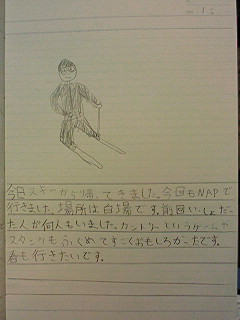 今日スキーから帰ってきました。今回もNAPで
行きました。場所は白場です。前回いっしょだっ
た人が何人もいました。カントリーというゲームや
スタンツもふくめてすごくおもしろかったです。
春も行きたいです。